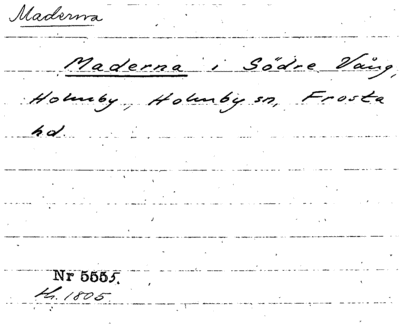 Maderna
Maderna i Södre Vång,
Holmby, Holmby sn, Frosta
hd
Nr 5555.
th. 1805